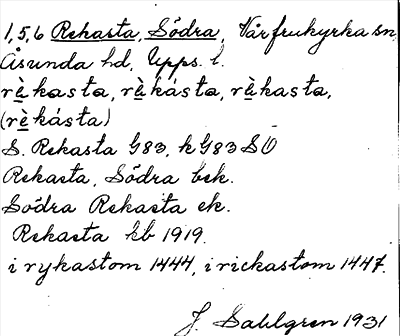 1,5,6 Rekasta, Södra, Vårfrukyrka sn,
Åsunda hd, Upps. l.
rèkasta, rèkásta, rèkasta,
(rèkásta)
S. Rekasta G83, k G83 SÖ
Rekasta, Södra bek.
Södra Rekasta ek.
Rekasta kb 1919.
i rykastom 1444, i rickastom 1447.
J. Sahlgren 1931